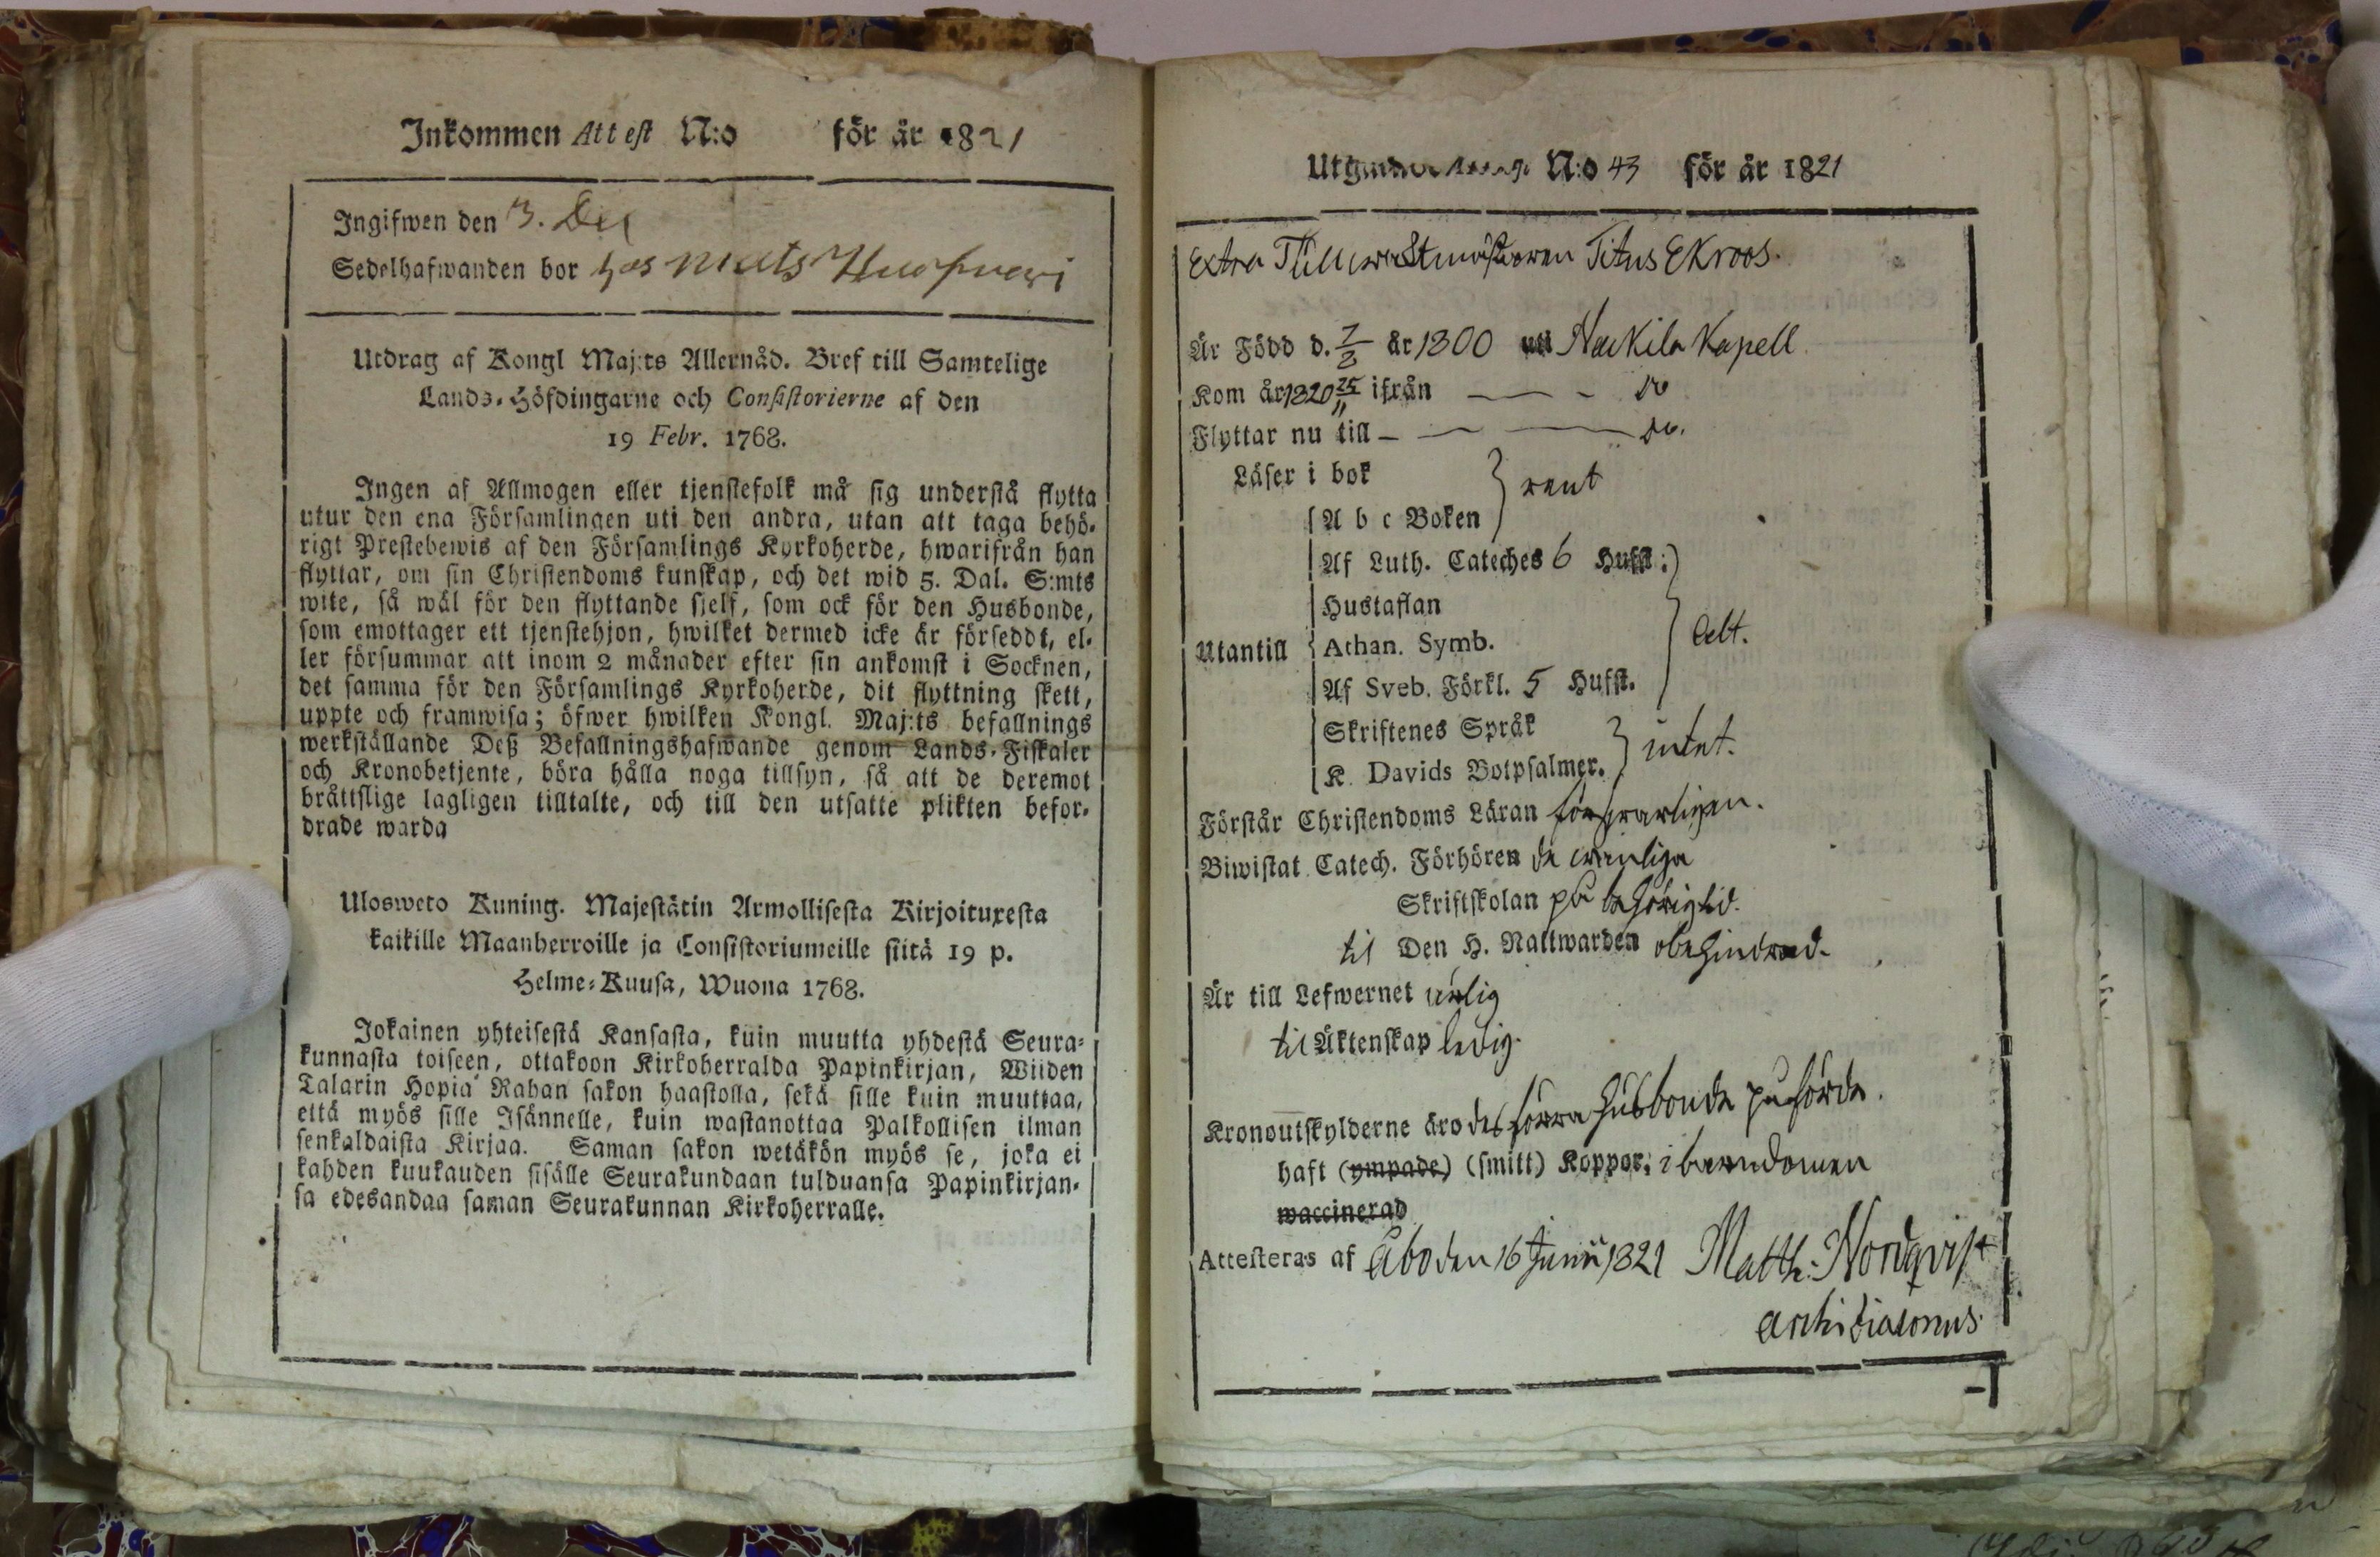 Inkommen Attest N:o för år 1821
Ingifwen den 13. Dec
Sedelhafwanden bor hos Mats
Utdrag af Kongl Maj:ts Allernåd. Bref till Samtelige
Lands-Höfdingarne och Consistorierne af den
19 Febr. 1768.
Ingen af Allmogen eller tjenstefolk må sig understå flytta
utur den ena Församlingen uti den andra, utan att taga behö-
rigt Prestebewis af den Församlings Kyrkoherde, hwarifrån han
flyttar, om sin Christendoms kunskap, och det wid 5. Dal. S:mts
wite, så wäl för den flyttande sjelf, som ock för den Husbonde,
som emottager ett tjenstehjon, hwilket dermed icke är förseddt, el-
ler försummar att inom 2 månader efter sin ankomst i Socknen,
det samma för den Församlings Kyrkoherde, dit flyttning skett,
uppte och framwisa; öfwer hwilken Kongl. Maj:ts befallnings
werkställande Deß Befallningshafwande genom Lands-Fiskaler
och Kronobetjente, böra hålla noga tillsyn, så att de deremot
bråttslige lagligen tilltalte, och till den utsatte plikten befor-
drade warda
Ulosweto Kuning. Majestätin Armollisesta Kirjoituxesta
kaikille Maanherroille ja Consistoriumeille siitä 19 p.
Helme-Kuusa, Wuona 1768.
Jokainen yhteisestä Kansasta, kuin muutta yhdestä Seura-
kunnasta toiseen, ottakoon Kirkoherralda Papinkirjan, Wiiden
Talarin Hopia Rahan sakon haastolla, sekä sille kuin muuttaa,
että myös sille Isännelle, kuin wastanottaa Palkollisen ilman
senkaldaista Kirjaa. Saman sakon wetäkön myös se, joka ei
kahden kuukauden sisälle Seurakundaan tulduansa Papinkirjan-
sa edesandaa saman Seurakunnan Kirkoherralle.
N:o 43 för år 1821
Extra Titus Ekroos.
Är Född d. 7/8 år 1800 uti Nakkila Kapell.
Kom år 1820 25/11 ifrån — - do
Flyttar nu till — — — do.
Läser i bok
A b c Boken } rent
Af Luth. Cateches 6 Hufst:
Hustaflan
Utantill Athan. Symb. } Allt.
Af Sveb. Förkl. 5 Hufst.
Skriftenes Språk
K. Davids Botpsalmer. } intet.
Förstår Christendoms Läran förswarligen.
Biwistat Catech. Förhören de wanliga
Skriftskolan på behörig tid.
til Den H. Nattwarden obehindrad.
Är till Lefwernet ärlig
til Äktenskap ledig.
Kronoutskylderne äro des förra husbonde påförde.
haft (ympade) (smitt) Koppor; i barndomen
waccinerad
Attesteras af Åbo den 16 Junii 1821 Matth: Nordqvist
Archidiaconus.